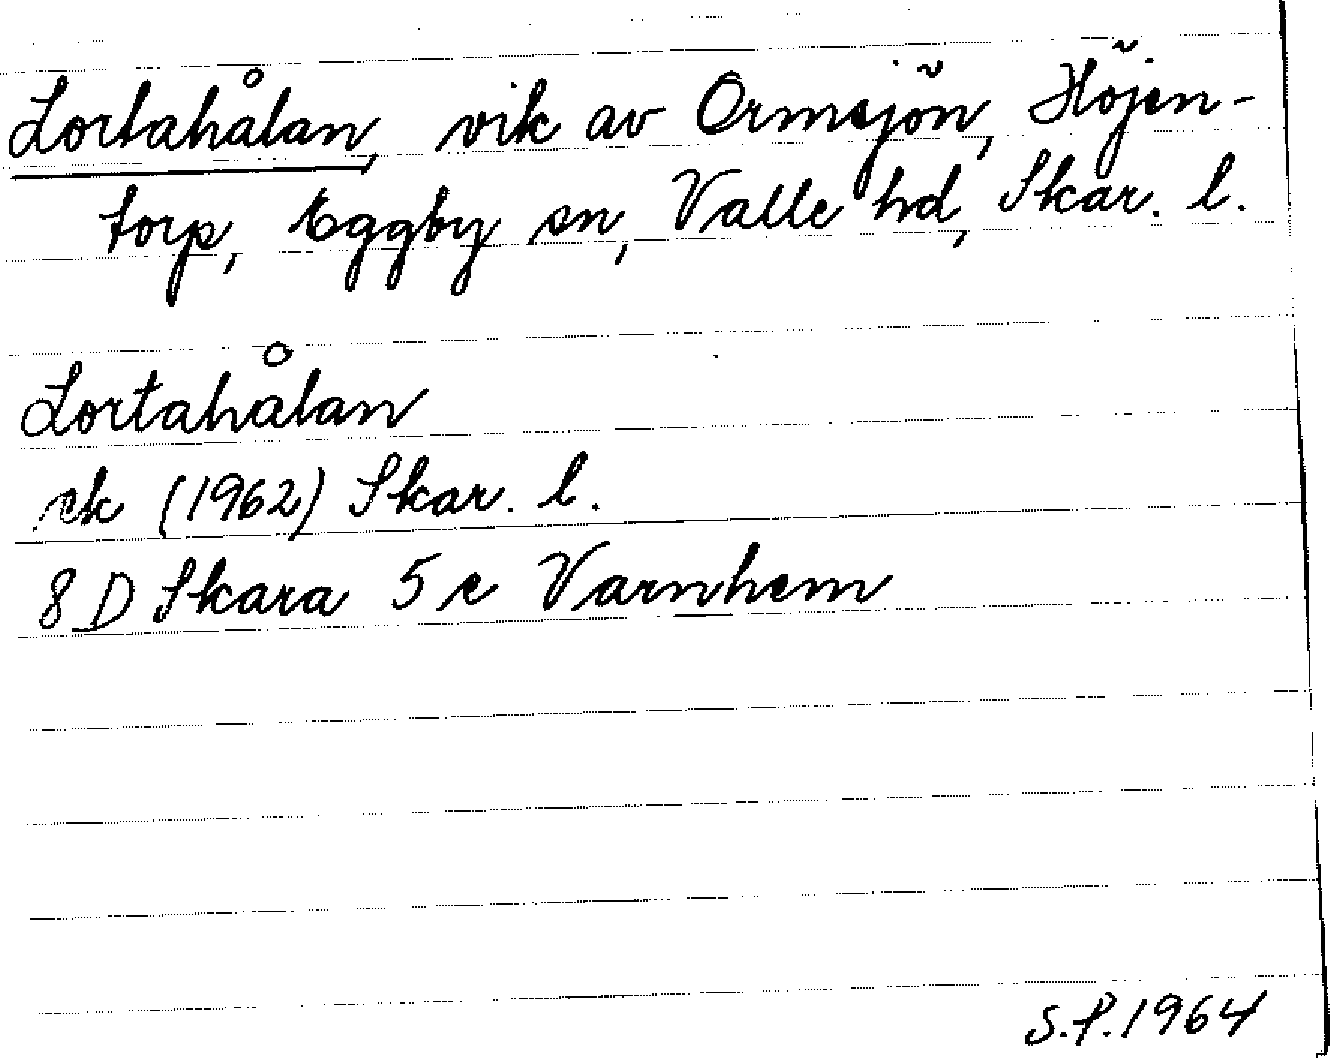 Lortahålan, vik av Ormsjön, Höjen-
torp, Eggby sn, Valle hd, Skar. l.
Lortahålan
ek (1962) Skar. l.
8 D Skara 5 e Varnhem
S.P. 1964